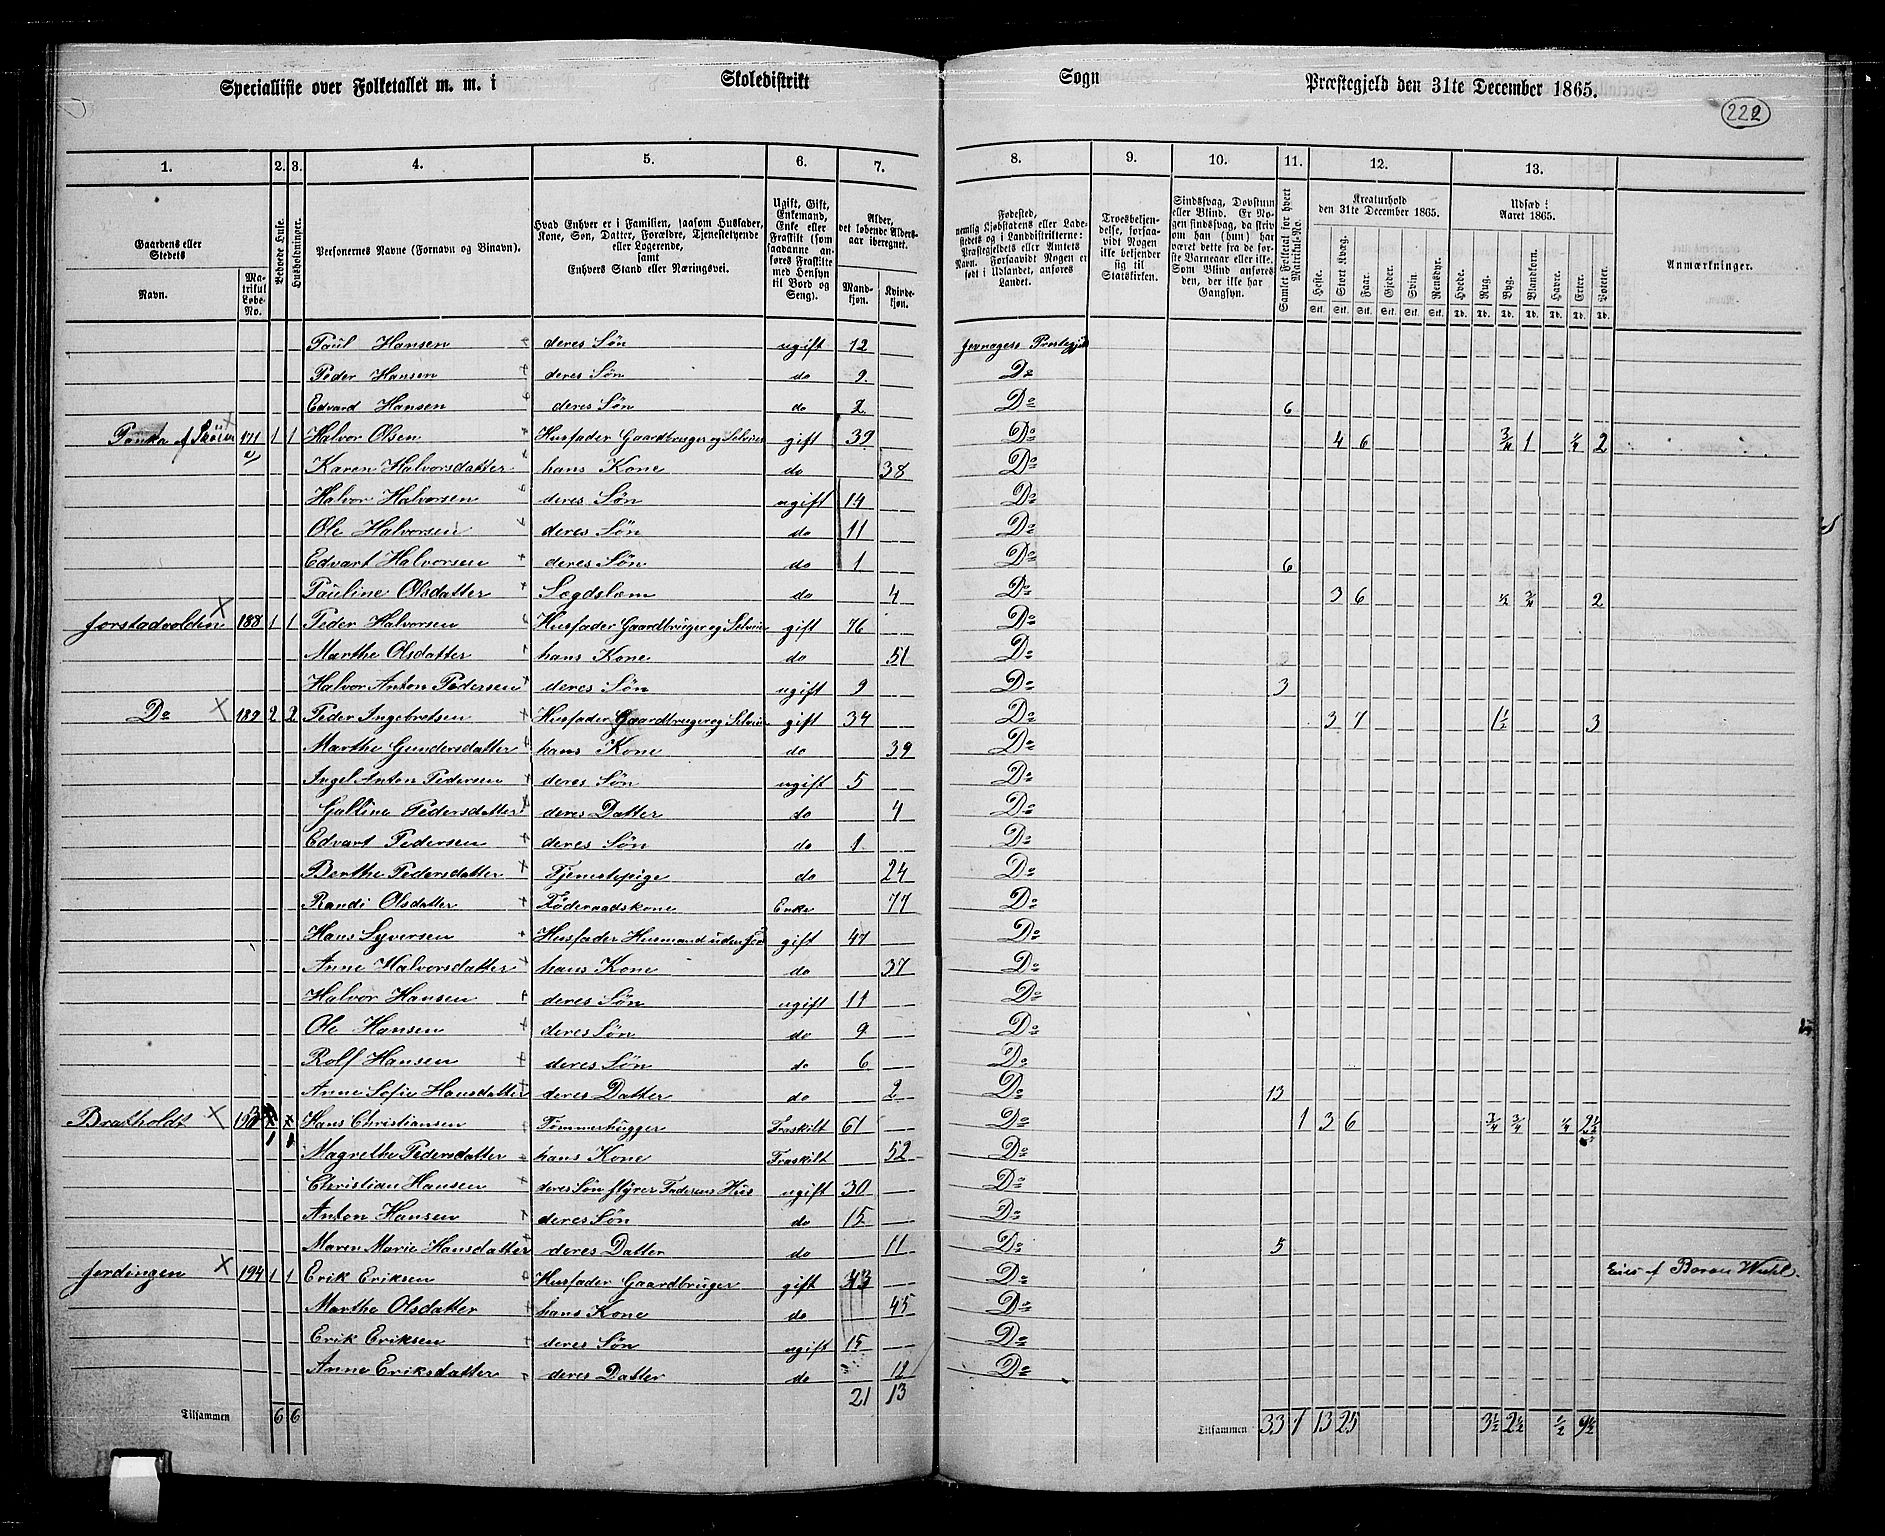 Specialliste over Folketallet m. m. i Skoledistrikt Sogn Præstegjeld den 31te December 1865.
222
1. 2. 3. 4. 5. 6. 7. 8. 9. 10. 11. 12. 13.
Gaardens eller Stedets
Navn.
Matrikul Løbe-No.
Beboede Huse.
Husholdninger.
Personernes Navne (Fornavn og Binavn).
Hvad Enhver er i Familien, saasom Husfader, Kone, Søn, Datter, Forældre, Tjenestetyende eller Logerende, samt Enhvers Stand eller Næringsvei.
Ugift, Gift, Enkemand, Enke eller Fraskilt (som saadanne anføres Fraskilte med Hensyn til Bord og Seng).
Alder, det løbende Alders-aar iberegnet.
Mandkjøn.
Kvindekjøn.
Fødested, nemlig Kjøbstadens eller Ladestedets og i Landdistrikterne: Præstegjeldets eller Amtets Navn. Forsaavidt Nogen er født i Udlandet, anføres Landet.
Troesbekjendelse, forsaavidt Nogen ikke bekjender sig til Statskirken.
Sindssvag, Døvstum eller Blind. Er Nogen sindssvag, da skrives om han (hun) har været dette fra de første Barneaar eller ikke. Som Blind anføres den, der ikke har Gangsyn.
Samlet Folketal for hvert Matrikul-No.
Kreaturhold den 31te December 1865.
Heste. Stort Kvæg. Faar. Gjeder. Svin. Rensdyr.
Stk. Stk. Stk. Stk. Stk. Stk.
Udsæd i Aaret 1865.
Hvede. Rug. Byg. Blandkorn. Havre. Erter. Poteter.
Td. Td. Td. Td. Td. Td. Td.
Anmærkninger.
Paul Hansen deres Søn ugift 12 Jevnagers
Peder Hansen deres Søn do 9 Do
Edvard Hansen deres Søn do 2 Do 6
171 1 1 Halvor Olsen Husfader Gaardbruger og Selveier gift 39 Do 4 6 3/4 1 1/4 2
Karen Halvorsdatter hans Kone do 38 Do
Halvor Halvorsen deres Søn ugift 14 Do
Ole Halvorsen deres Søn do 11 Do
Edvart Halvorsen deres Søn do 1 Do 6
Pauline Olsdatter Lægdslem do 4 Do 3 6 1/2 3/4 2
188 1 1 Peder Halvorsen Husfader Gaardbruger og Selveier gift 76 Do
Marthe Olsdatter hans Kone do 51 Do
Halvor Anton Pedersen deres Søn ugift 9 Do 3
Do 189 2 2 Peder Ingebretsen Husfader Gaardbruger og Selveier gift 34 Do 3 7 1 1/2 3
Marthe Gundersdatter hans Kone do 39 Do
Ingel Anton Pedersen deres Søn ugift 5 Do
Galline Pedersdatter deres Datter do 4 Do
Edvart Pedersen deres Søn do 1 Do
Berthe Pedersdatter Tjenestepige do 24 Do
Randi Olsdatter Føderaadskone Enke 77 Do
Hans Syversen Husfader Husmand uden Jor gift 47 Do
Anne Halvorsdatter hans Kone do 37 Do
Halvor Hansen deres Søn ugift 11 Do
Ole Hansen deres Søn do 9 Do
Rolf Hansen deres Søn do 6 Do
Anne Sofie Hansdatter deres Datter do 2 Do 13
Bratholdt Hans Christiansen Tømmerhugger Fraskilt 61 Do 1 3 6 3/4 3/4 1/4 2 1/2
1 1 Magrethe Pedersdatter hans Kone Fraskilt 52 Do
Christian Hansen deres Søn styrer Faderens Hus ugift 30 Do
Anton Hansen deres Søn do 15 Do
Maren Marie Hansdatter deres Datter do 11 Do 5
194 1 1 Erik Eriksen Husfader Gaardbruger gift 43 Do Eies af Baron
Marthe Olsdatter hans Kone do 45 Do
Erik Eriksen deres Søn ugift 15 Do
Anne Eriksdatter deres Datter do 12 Do
21 13
Tilsammen 6 6 Tilsammen 33 1 13 25 3 1/2 2 1/2 1/2 9 1/2